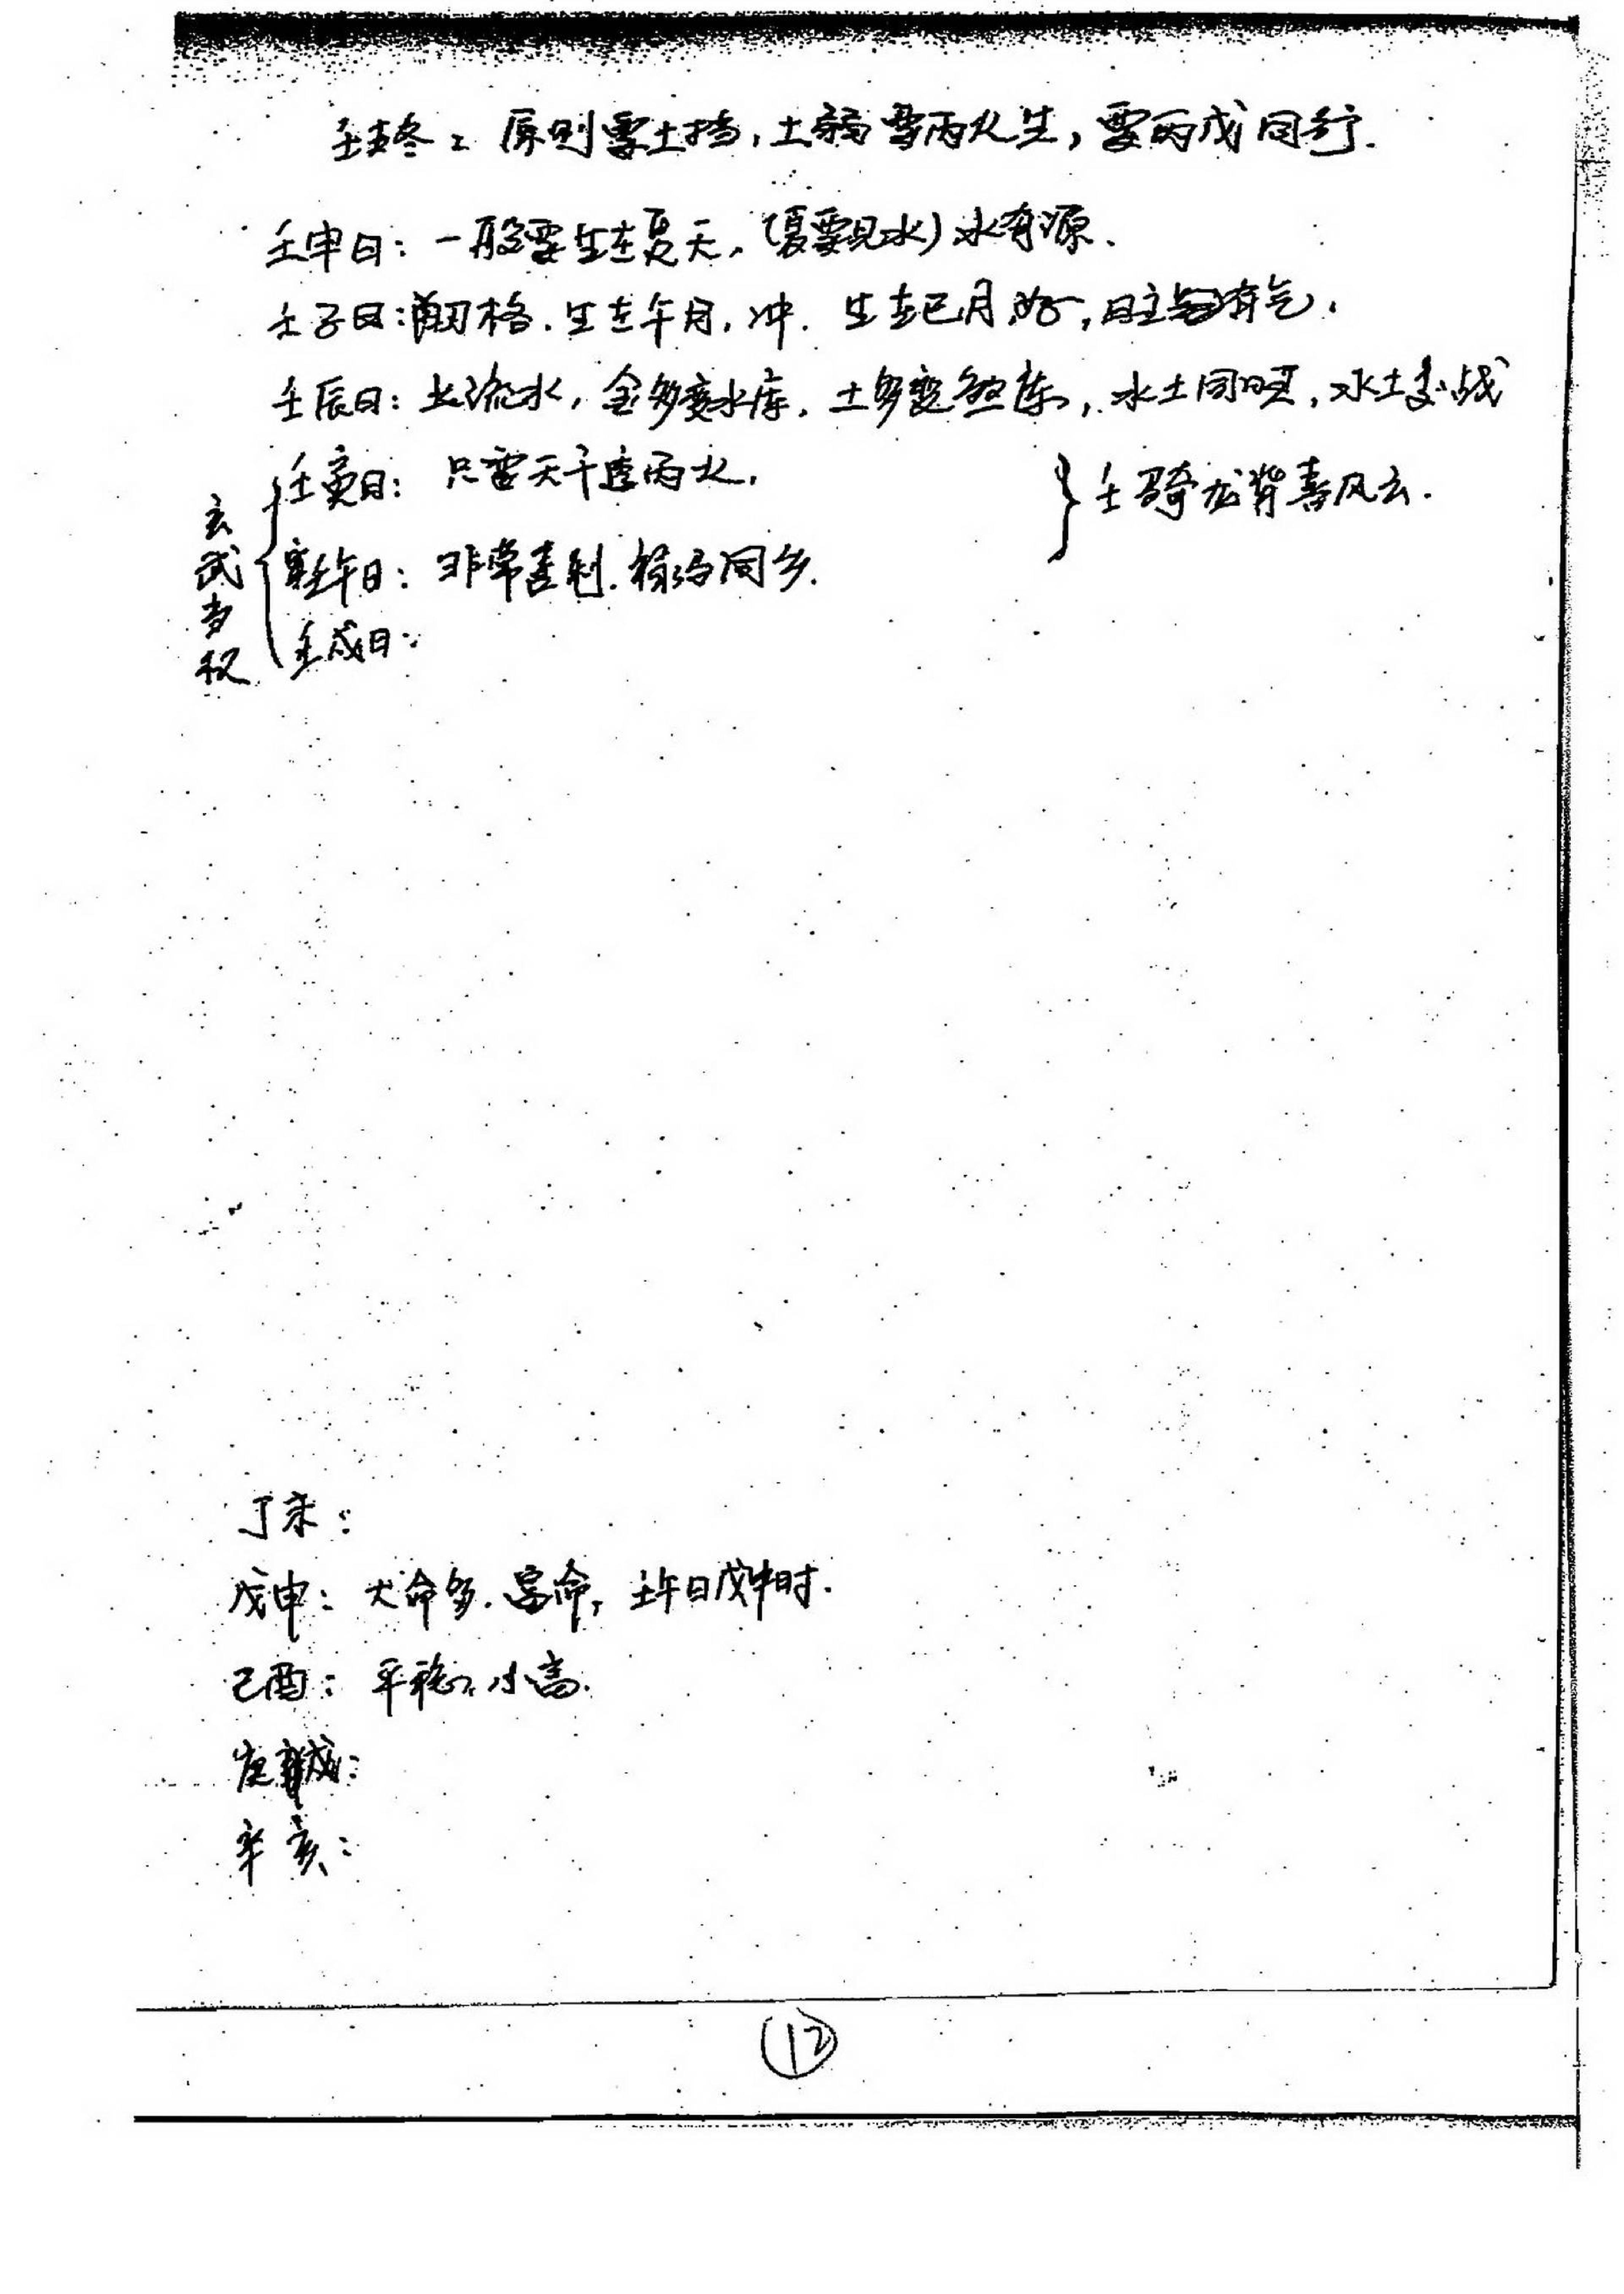 壬冬：原则需土挡，土弱需丙火生，要丙戊同行.
壬申日：一般要生在夏天，（夏要见水）水有源.
壬子日：羊刃格.生在午月，冲.生在巳月，好，日主有气.
壬辰日：水，金多变水库，土多变，水土同旺，水土交战
壬寅日：只需天干透丙火.
壬骑龙背喜风云.
玄武当权
壬午日：非常喜利.禄马同乡.
壬戌日：
丁未：
戊申：大命多.富命，壬午日戊申时.
己酉：平稳，小富.
庚戌：
辛亥：
12